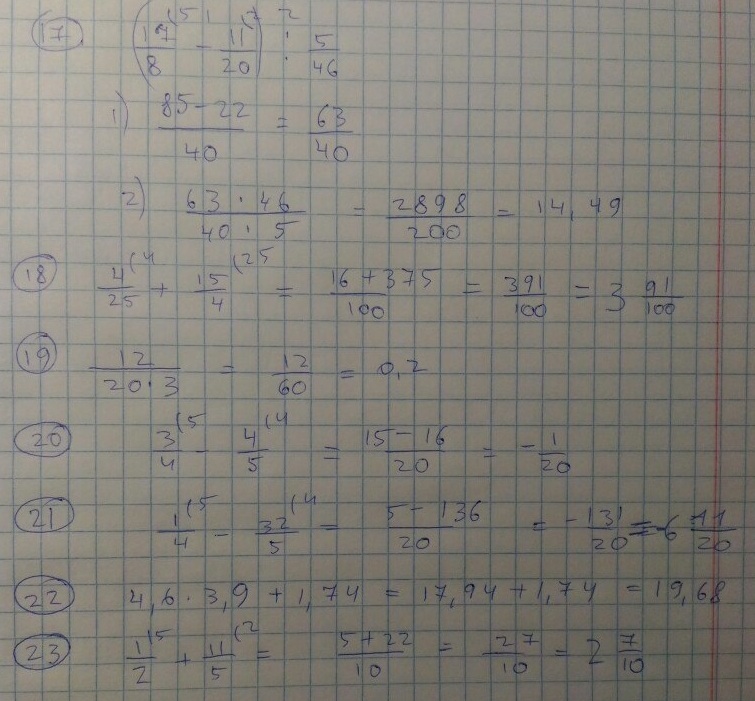 17 (17/8 (5 - 11/20 (2) : 5/46
1) 85 - 22 / 40 = 63/40
2) 63 · 46 / 40 · 5 = 2898/200 = 14,49
18 4/25 (4 + 15/4 (25 = 16 + 375 / 100 = 391/100 = 3 91/100
19 12 / 20 · 3 = 12/60 = 0,2
20 3/4 (5 - 4/5 (4 = 15 - 16 / 20 = - 1/20
21 1/4 (5 - 32/5 (4 = 5 - 136 / 20 = - 131/20 = - 6 11/20
22 4,6 · 3,9 + 1,74 = 17,94 + 1,74 = 19,68
23 1/2 (5 + 11/5 (2 = 5 + 22 / 10 = 27/10 = 2 7/10